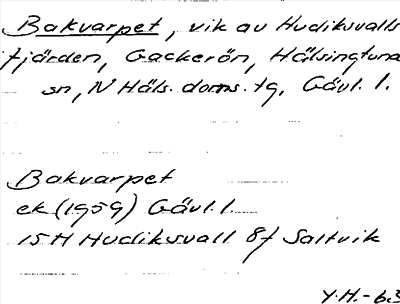 Bakvarpet, vik av Hudiksvalls
fjärden, Gackerön, Hälsingtuna
sn, N Häls. doms. tg, Gävl. l.
Bakvarpet
ek (1959) Gävl. l.
15H Hudiksvall 8f Saltvik
Y.H.-63